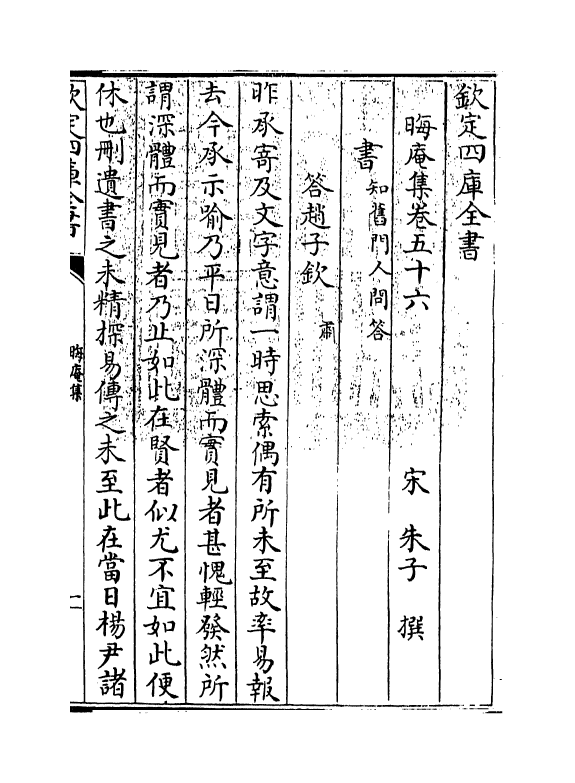 欽定四庫全書
晦庵集卷五十六　宋　朱子　撰
書知舊門人問答
答趙子欽
昨承寄及文字意謂一時思索偶有所未至故率易報
去今承示喻乃平日所深體而實見者甚愧輕發然所
謂深體而實見者乃止如此在賢者似尤不宜如此便
休也刪遺書之未精探易傳之未至此在當日楊尹諸
欽定四庫全書
晦庵集